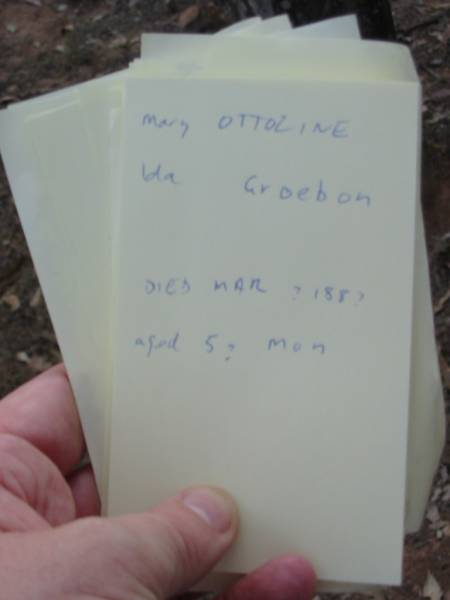 Mary OTTOLINE
Ida Groebon
DIED MAR ? 188?
aged 5? Mon